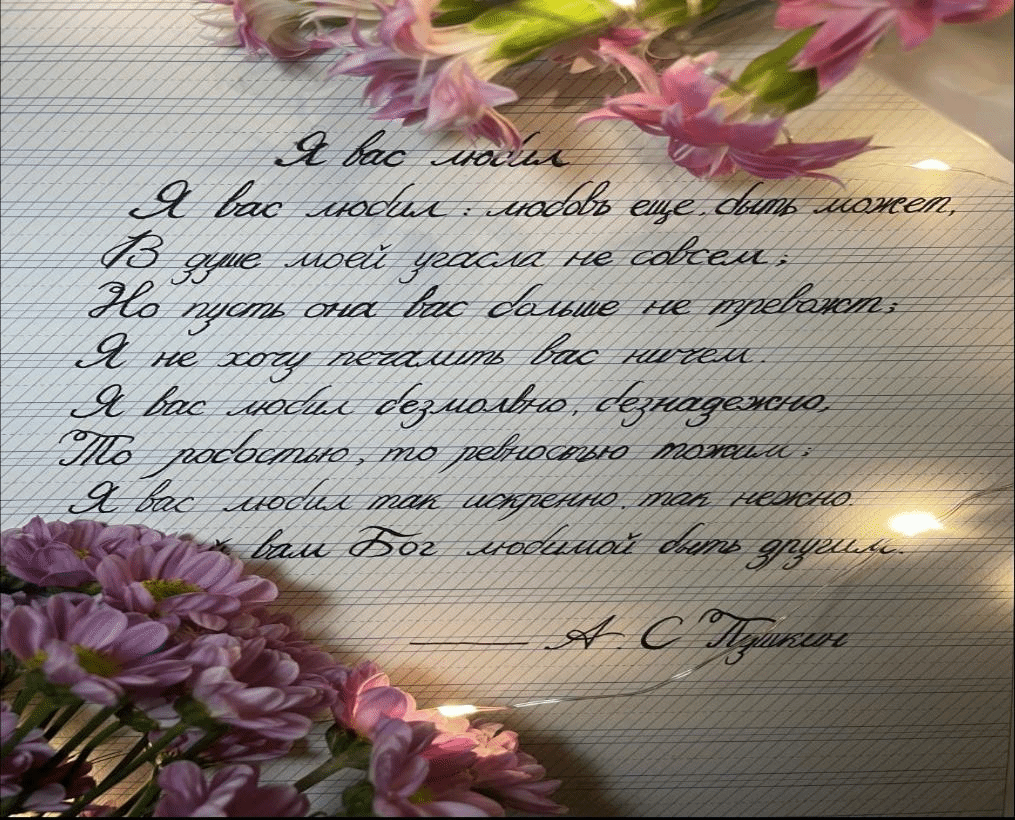 Я вас любил
Я вас любил: любовь еще, быть может,
В душе моей угасла не совсем;
Но пусть она вас больше не тревожт;
Я не хочу печалить вас ничем.
Я вас любил безмолвно, безнадежно,
То робостью, то ревностью томим;
Я вас любил так искренно, так нежно.
вам Бог любимой быть другим.
— А. С Пушкин